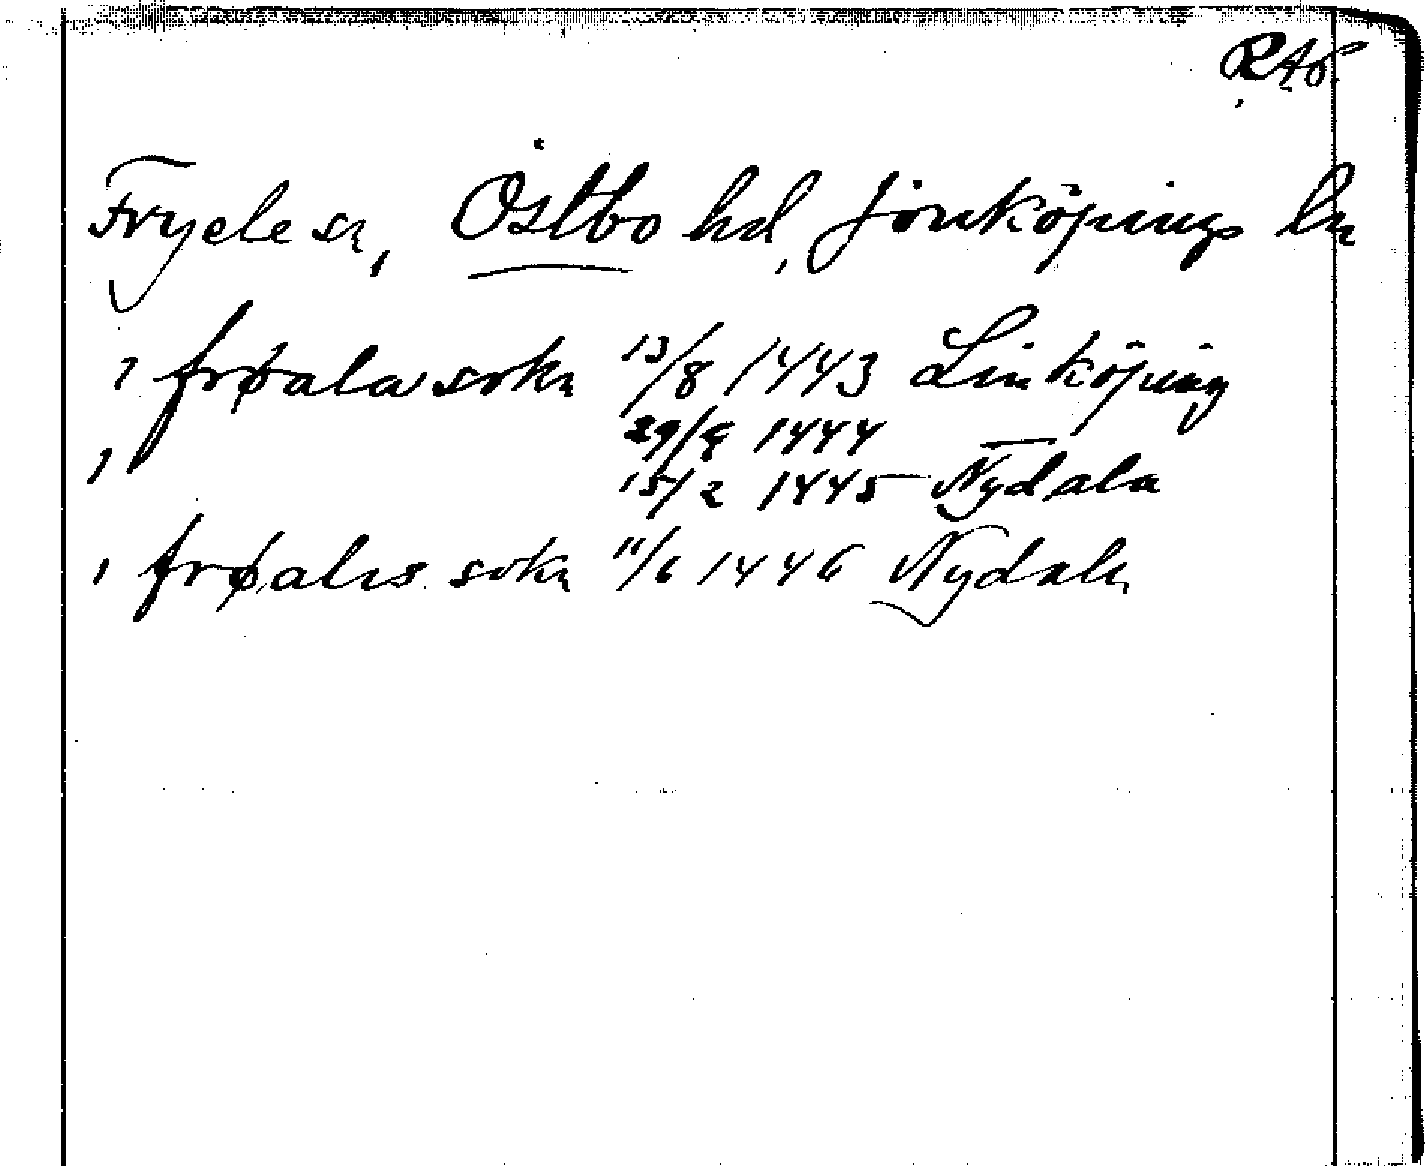 RAp.
Fryele sn, Östbo hd, Jönköpings ln
i frøala sokn 13/8 1443 Linköping
i 29/9 1444
15/2 1445 Nydala
i frøalis sokn 11/6 1446 Nydala